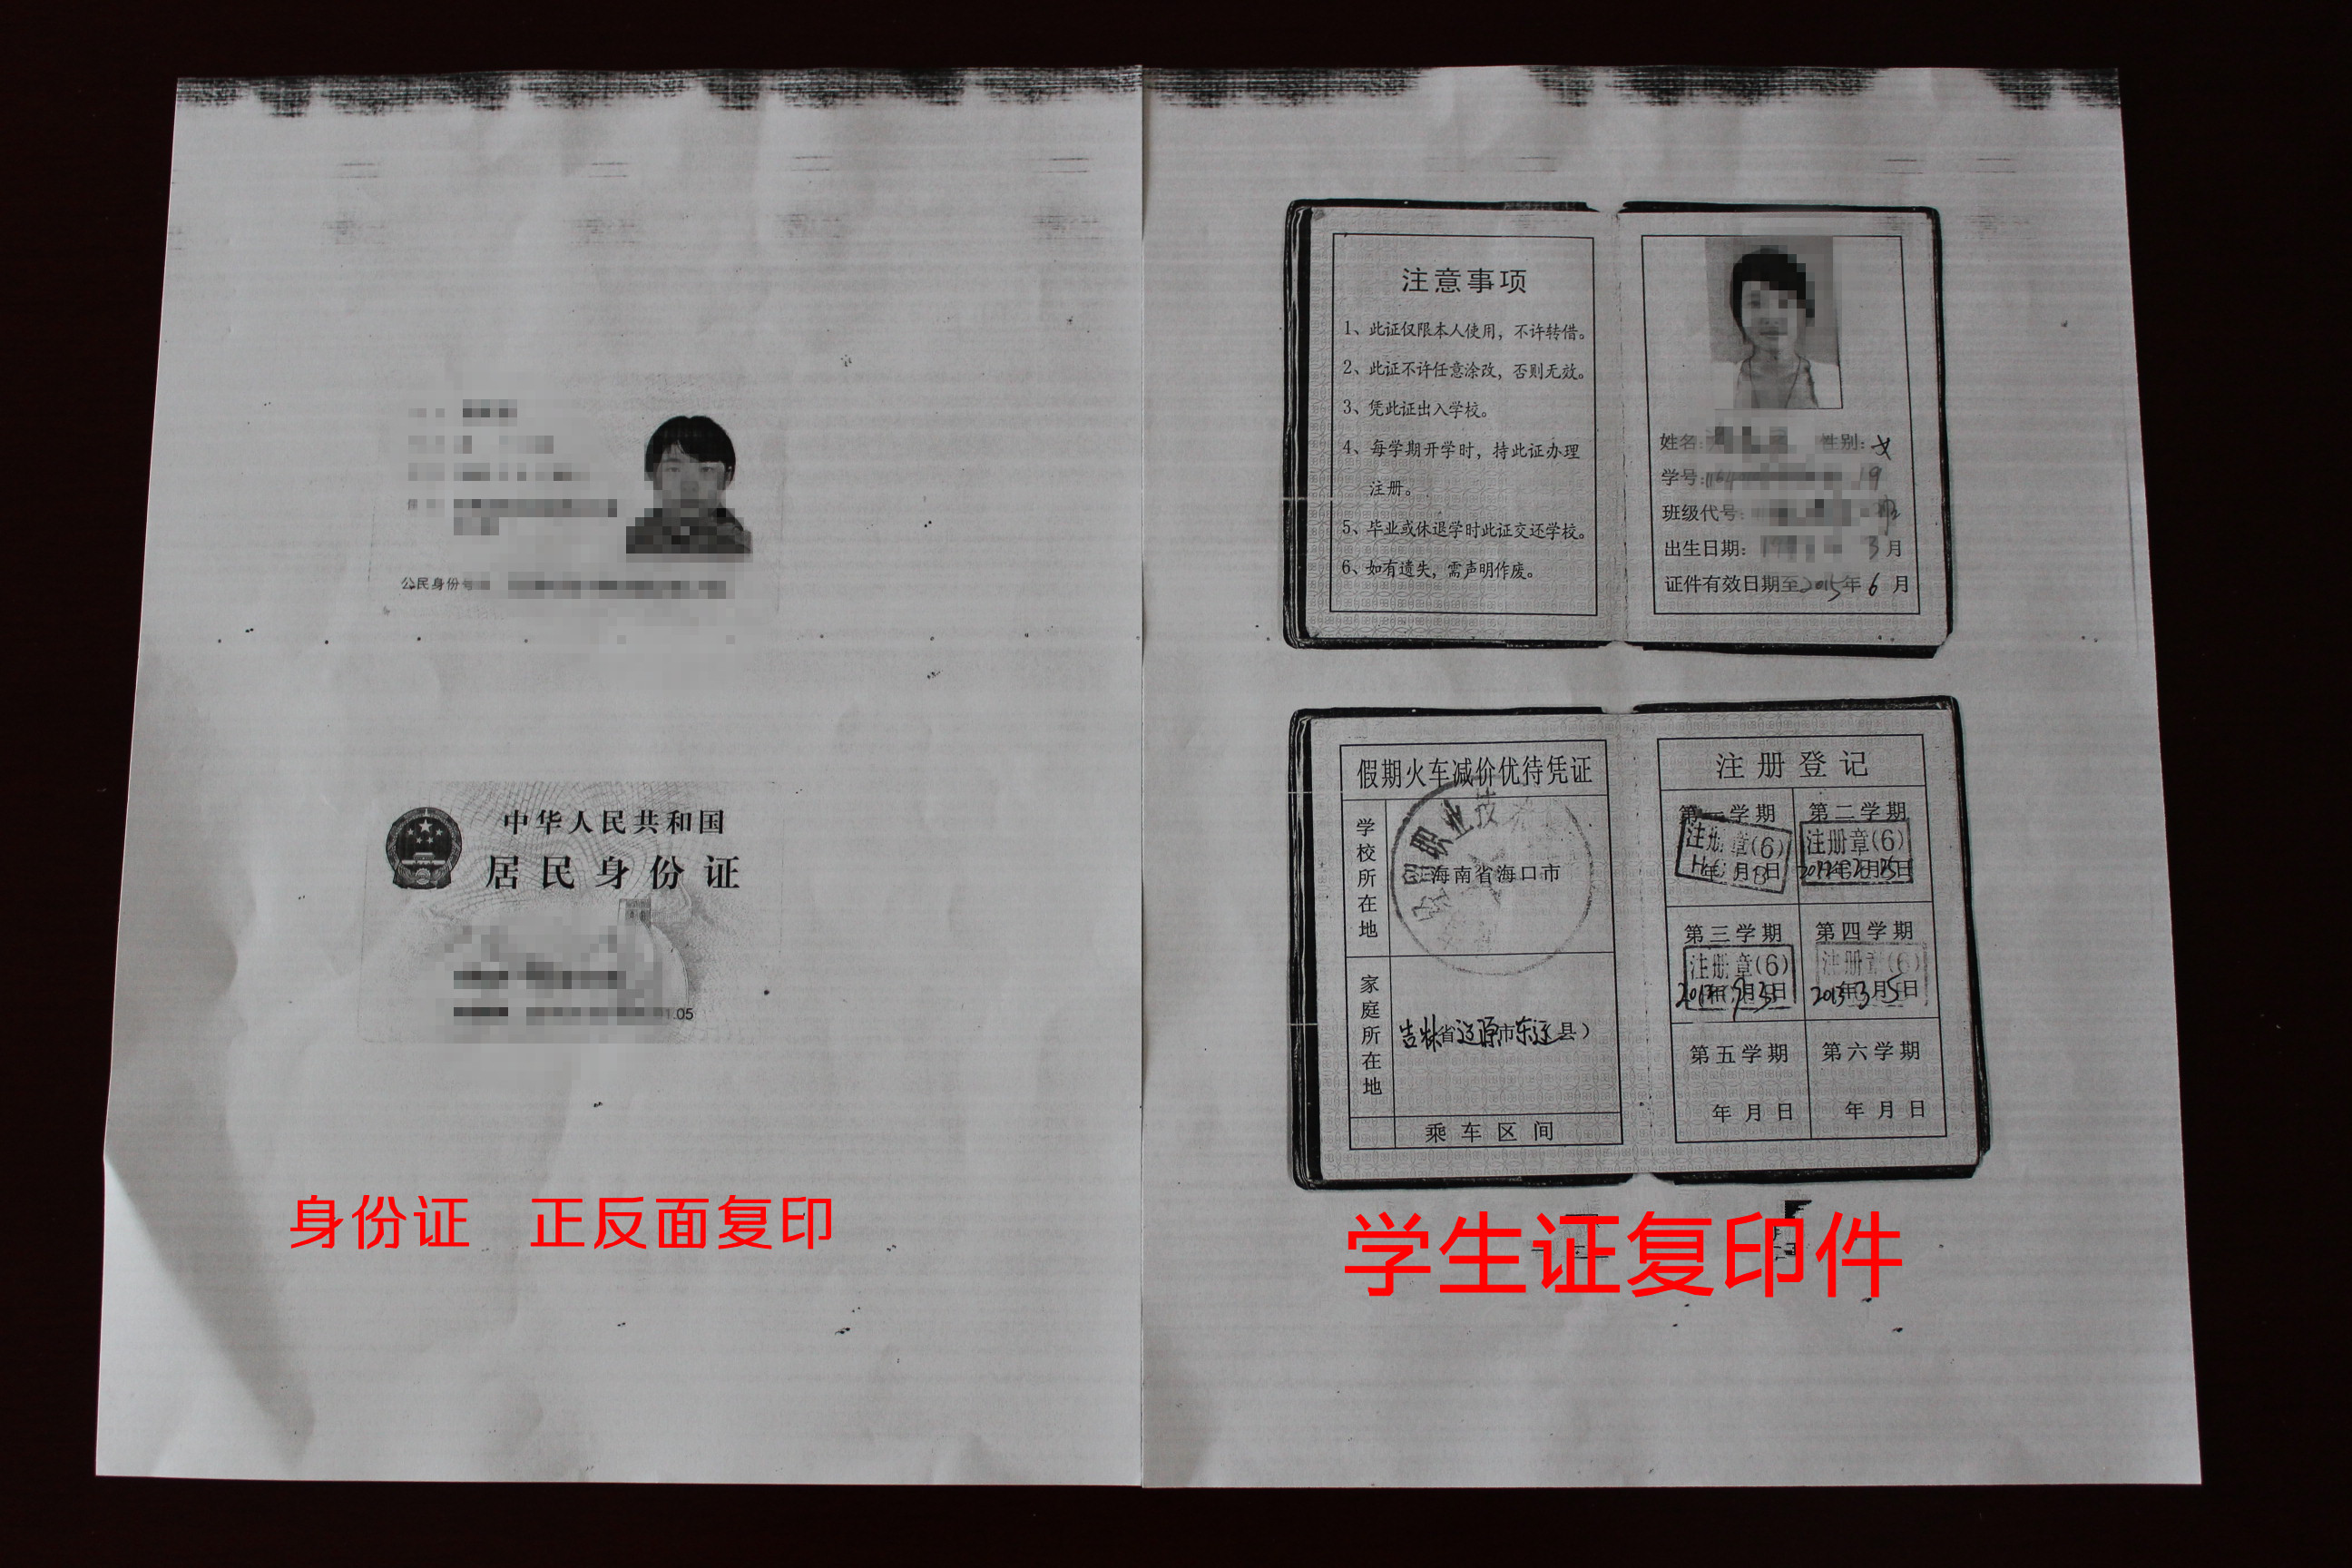 公民身份号
中华人民共和国
居民身份证
1.05
身份证 正反面复印
注意事项
1、此证仅限本人使用，不许转借。
2、此证不许任意涂改，否则无效。
3、凭此证出入学校。
4、每学期开学时，持此证办理
注册。
5、毕业或休退学时此证交还学校。
6、如有遗失，需声明作废。
姓名: 性别: 女
学号: 19
班级代号:
出生日期: 3月
证件有效日期至2015年6月
假期火车减价优待凭证
学校所在地
职业技
海南省海口市
家庭所在地
吉林省辽源市东辽县）
乘车区间
注册登记
第一学期 第二学期
注册章(6) 注册章(6)
年 月 日 年 月 日
第三学期 第四学期
注册章(6) 注册章(6)
年 月 日 2013年3月5日
第五学期 第六学期
年 月 日 年 月 日
学生证复印件